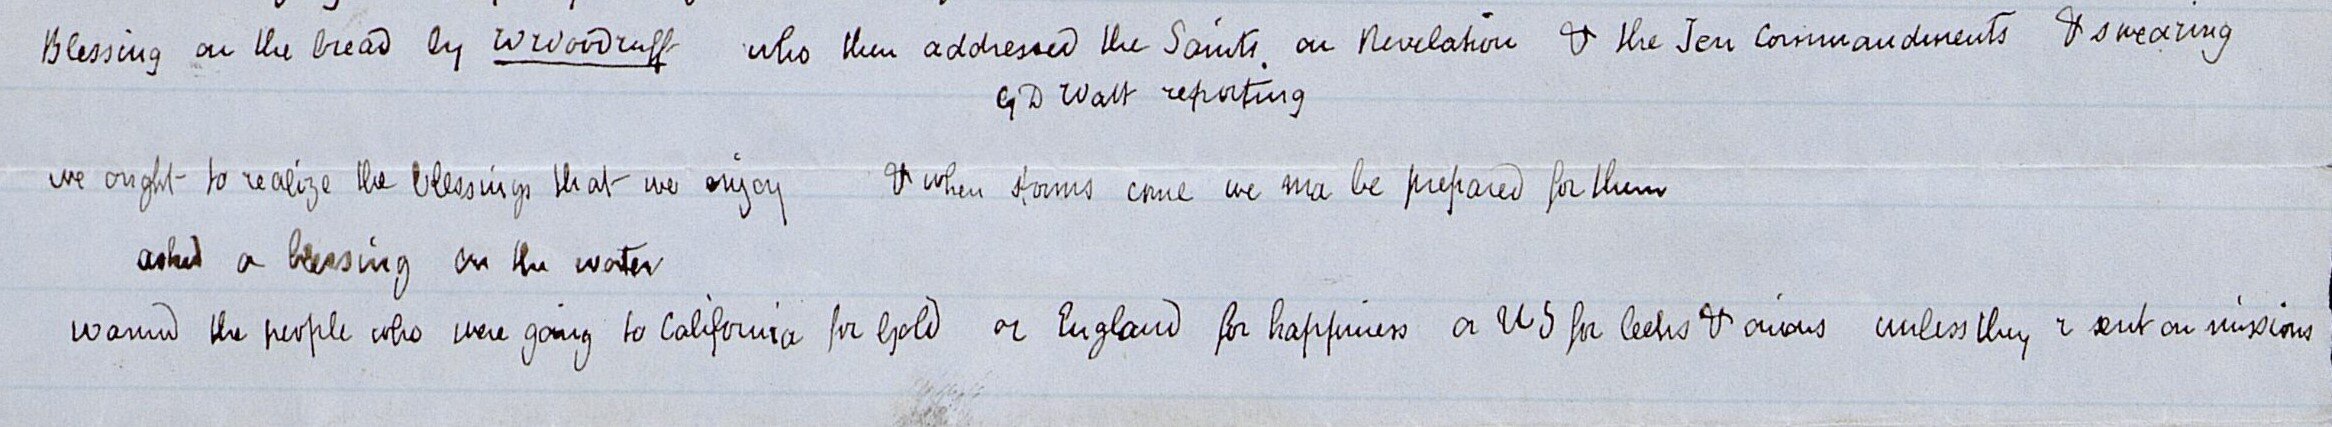 Blessing on the bread by W Woodruff who then addressed the Saints on Revelation & the Ten Commandments & swearing
G D Watt reporting
we ought to realize the blessings that we enjoy & when storms come we ma be prepared for them
asked a blessing on the water
warned the people who were going to California for Gold or England for happiness or US for leeks & onions unless they r sent on missions